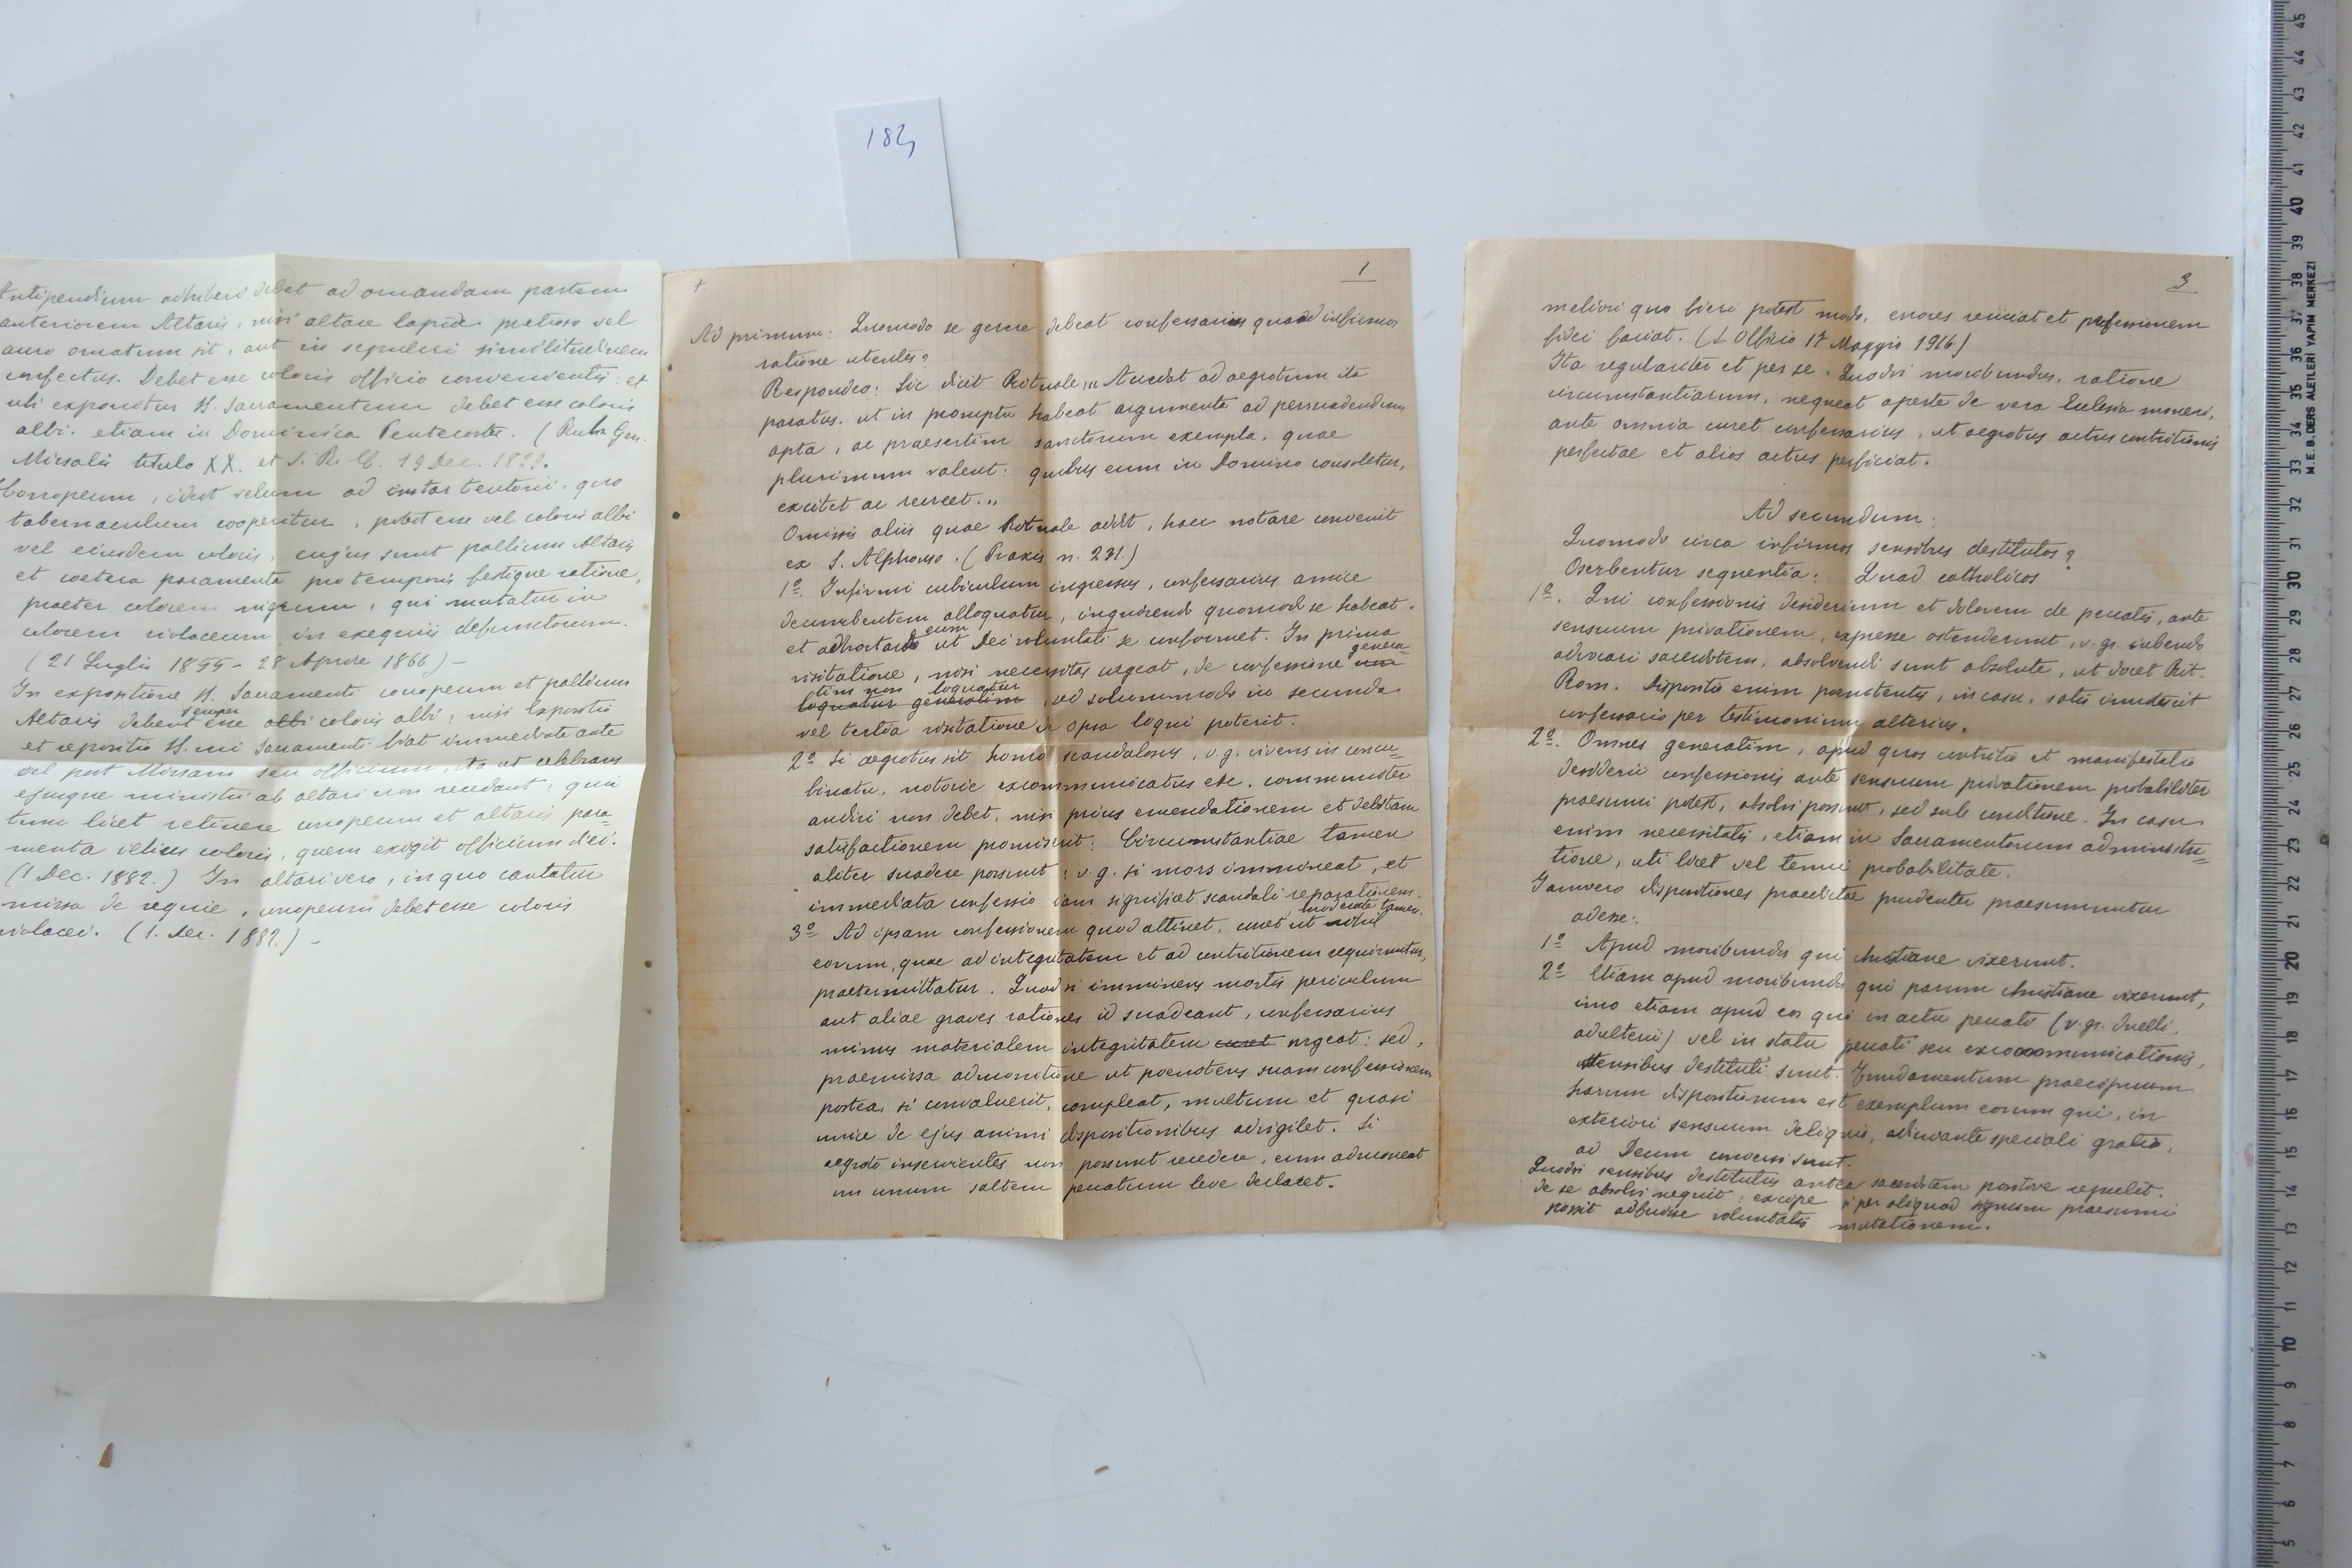 184
Antipendium adhiberi debet ad ornandam partem
anteriorem Altaris, nisi altare lapide pretioso vel
auro ornatum sit, aut in sepulcri similitudinem
confectus. Debet esse coloris officio convenientis: et
ubi exponitur SS. Sacramentum debet esse coloris
albi. etiam in Dominica Pentecostes. (Rubr. Gen.
Missalis titulo XX. et S. R. C. 19 Dec. 1829.
Conopeum, idest velum ad instar tentorii, quo
tabernaculum cooperitur, potest esse vel coloris albi
vel eiusdem coloris, cujus sunt pallium Altaris
et coetera paramenta pro temporis festique ratione,
praeter colorem nigrum, qui mutatur in
colorem violaceum in exequiis defunctorum.
(21 Luglio 1855 - 28 Aprile 1866) -
In expositione SS. Sacramenti conopeum et pallium
Altaris debent semper esse albi coloris albi, nisi Expositio
et repositio SS.mi Sacramenti fiat immediate ante
vel post Missam seu officium, ita ut celebrans
ejusque ministri ab altari non recedant: quia
tunc licet retinere conopeum et altaris para=
menta illius coloris, quem exigit officium diei.
(1 Dec. 1882.) In altari vero, in quo cantatur
missa de requie, conopeum debet esse coloris
violacei. (1. Dec. 1882.) -
+
1
Ad primum: Quomodo se gerere debeat confessarius quoad infirmos
ratione utentes?
Respondeo: Sic dicit Rituale „ Accedat ad aegrotum ita
paratus, ut in promptu habeat argumenta ad persuadendum
apta, ac praesertim sanctorum exempla, quae
plurimum valent: quibus eum in Domino consoletur,
excitet ac recreet. „
Omissis aliis quae Rituale addit, haec notare convenit
ex S. Alphonso. (Praxis n. 231.)
1º. Infirmi cubiculum ingressus, confessarius amice
decumbentem alloquatur, inquirendo quomodo se habeat.
et adhortando eum ut Dei voluntati se conformet. In prima
visitatione, nisi necessitas urgeat, de confessione non genera=
tim non loquatur
loquatur generatim, sed solummodo in secunda
vel tertia visitatione de ipsa loqui poterit.
2º Si aegrotus sit homo scandalosus, v.g. vivens in concu=
binatu, notorie excommunicatus etc. communiter
audiri non debet, nisi prius emendationem et debitam
satisfactionem promiserit: Circumstantiae tamen
aliter suadere possunt: v.g. si mors immineat, et
immediata confessio iam significet scandali reparationem.
3º Ad ipsam confessionem quod attinet, curet ut moderate tamen, nihil
eorum, quae ad integritatem et ad contritionem requiruntur,
praetermittatur. Quod si imminens mortis periculum
aut aliae graves rationes id suadeant, confessarius
minus materialem integritatem curet urgeat: sed,
praemissa admonitione ut poenitens suam confessionem
postea, si convaluerit, compleat, multum et quasi
unice de ejus animi dispositionibus advigilet. Si
aegroto inservientes non possunt recedere, eum admoneat
ut unum saltem peccatum leve declaret.
3
meliori quo fieri potest modo, errores reiiciat et professionem
fidei faciat. (S. Officio 17 Maggio 1916)
Ita regulariter et per se. Quodsi moribundus, ratione
circumstantiarum, nequeat aperte de vera Ecclesia moneri,
ante omnia curet confessarius, ut aegrotus actus contritionis
perfectae et alios actus perficiat.
Ad secundum:
Quomodo circa infirmos sensibus destitutos?
Oserbentur sequentia: Quad catholicos
1º. Qui confessionis desiderium et dolorem de peccatis, ante
sensuum privationem, expresse ostenderunt, v. gr. iubendo
advocari sacerdotem, absolvendi sunt absolute, ut docet Rit.
Rom. Dispositio enim poenitentis, in casu, satis innotescit
confessario per testimonium alterius.
2º. Omnes generatim, apud quos contritio et manifestatio
desiderii confessionis ante sensuum privationem probabiliter
praesumi potest, absolvi possunt, sed sub conditione. In casu
enim necessitatis, etiam in Sacramentorum administra=
tione, uti licet vel tenui probabilitate.
Jamvero dispositiones praedictae prudenter praesumuntur
adesse:
1º Apud moribundos qui christiane vixerunt.
2º Etiam apud moribundos qui parum christiane vixerunt,
imo etiam apud eos qui in actu peccati (v. gr. duelli,
adulterii) vel in statu peccati seu excommunicationis,
sensibus destituti sunt. Fundamentum praecipuum
harum dispositionum est exemplum eorum qui, in
exteriori sensuum deliquio, adiuvante speciali gratia,
ad Deum conversi sunt.
Quodsi sensibus destitutus antea sacerdotem positive repulit.
de se absolvi nequit: excipe si per aliquod signum praesumi
possit adfuisse voluntatis mutationem.
M.E.B. DERS ALETLERİ YAPIM MERKEZİ
45
44
43
42
41
40
39
38
37
36
35
34
33
32
31
30
29
28
27
26
25
24
23
22
21
20
19
18
17
16
15
14
13
12
11
10
9
8
7
6
5